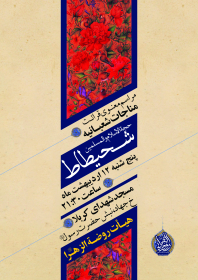 مراسم معنوی قرائت
مناجات شعبانیه
حجت الاسلام والمسلمین
شحیطاط
پنج شنبه ۱۲ اردیبهشت ماه
ساعت ۲۱:۳۰
مسجد شهدای کربلا
خ جهاد نبش حضرت رسول
هیأت روضة الزهرا